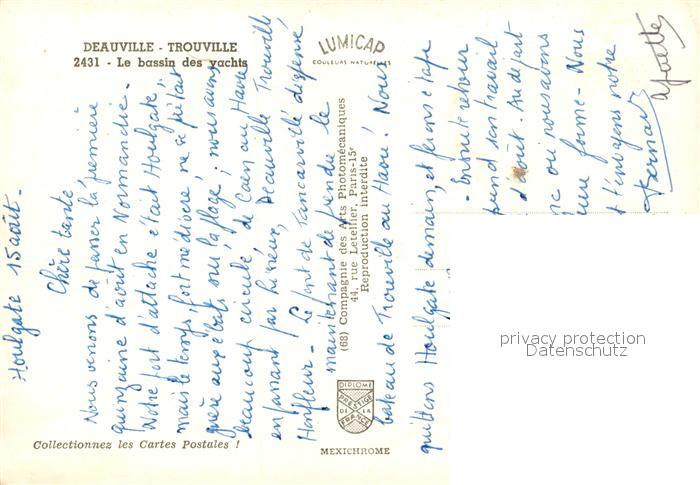 DEAUVILLE - TROUVILLE
2431 - Le bassin des yachts
LUMICAP
COULEURS NATURELLES
Houlgate 15 août.
Chère tante
Nous venons de passer la première
quinzaine d'août en Normandie.
Notre port d'attache était Houlgate,
mais le temps, fort médiocre ne se prêtait
guère aux ébats sur la plage ; nous avons
beaucoup circulé, de Caen au Havre
en passant par Lisieux, Deauville Trouville
Honfleur - Le pont de Tancarville dispense
maintenant de prendre le
bateau de Trouville au Havre ! Nous
quittons Houlgate demain, et ferons étape
- Ensuite retour
son travail
d'août - Au départ
où nous avons
forme - Nous
t'envoyons notre
(68) Compagnie des Arts Photomécaniques
44, rue Letellier, Paris-15e
Reproduction interdite
DIPLOME
PRESTIGE
DE LA
FRANCE
MEXICHROME
Collectionnez les Cartes Postales !
privacy protection
Datenschutz